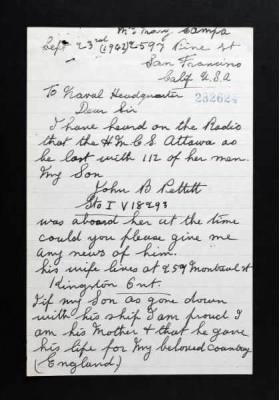 Mrs Tracy Camps
Sept 23rd (1942) 2597 Pine St
San Francisco
Calf U.S.A
To Naval Headquarter 232624
Dear Sir
I have heard on the Radio
that the H.M.C.S Attawa as
be last with 112 of her men.
My Son
John B Pettitt
Sto I V18293
was aboard her at the time
could you please give me
any news of him.
his wife lives at 259 Montreal st
Kingston Ont.
if my Son as gone down
with his ship I am proud I
am his Mother & that he gave
his life for My beloved country
(England)